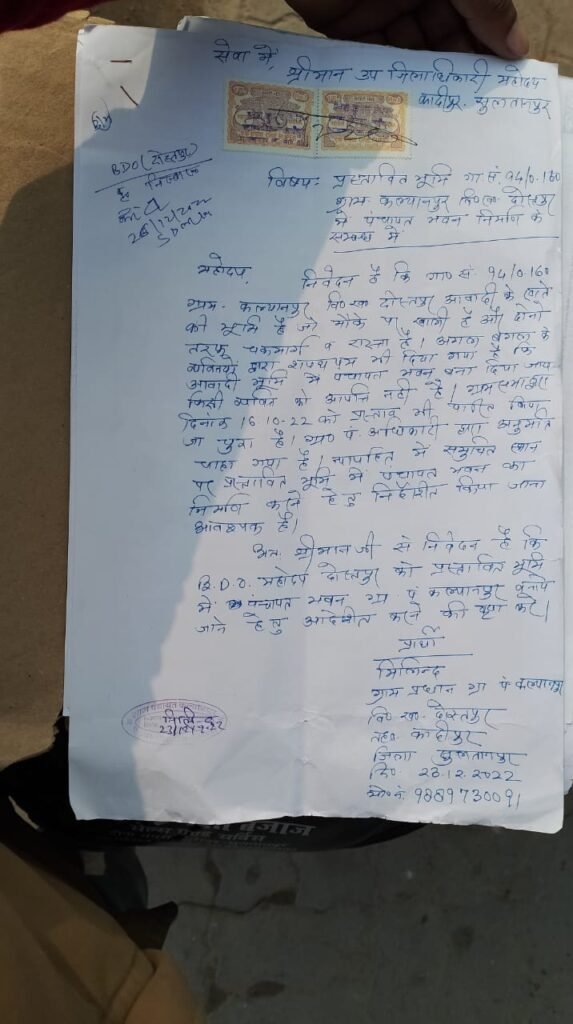 सेवा में,
श्रीमान उप जिलाधिकारी महोदय
कादीपुर, सुलतानपुर
BDO (दोस्तपुर)
26/12/2022
SDM
विषय:- प्रस्तावित भूमि गा० सं. 94/0.160
ग्राम- कल्यानपुर वि०ख० दोस्तपुर
में पंचायत भवन निर्माण के
सम्बन्ध में
महोदय,
निवेदन है कि गा० सं० 94/0.160
ग्राम- कल्यानपुर वि० ख० दोस्तपुर आबादी के खाते
की भूमि है जो मौके पर खाली है और दोनो
तरफ चकमार्ग व रास्ता है। अगल बगल के
व्यक्तियो द्वारा शपथपत्र भी दिया गया है कि
आबादी भूमि में पंचायत भवन बना दिया जाय
किसी व्यक्ति को आपत्ति नही है। ग्राम सभा द्वारा
दिनांक 16.10.22 को प्रस्ताव भी पारित किया
जा चुका है। ग्रा० पं. अधिकारी द्वारा अनुमति
चाहा गया है। न्यायहित में समुचित स्थान
पर प्रस्तावित भूमि में पंचायत भवन का
निर्माण करने हेतु निर्देशित किया जाना
आवश्यक है।
अतः श्रीमान जी से निवेदन है कि
B.D.O. महोदय दोस्तपुर को प्रस्तावित भूमि
में पंचायत भवन ग्रा. पं कल्यानपुर बनाये
जाने हेतु आदेशित करने की कृपा करें।
प्रार्थी
मिलिन्द
ग्राम प्रधान ग्रा पं कल्यानपुर
वि० ख०- दोस्तपुर
तह० कादीपुर
जिला सुलतानपुर
दि० 23.12.2022
मो० नं० 9889730091
23/12/22